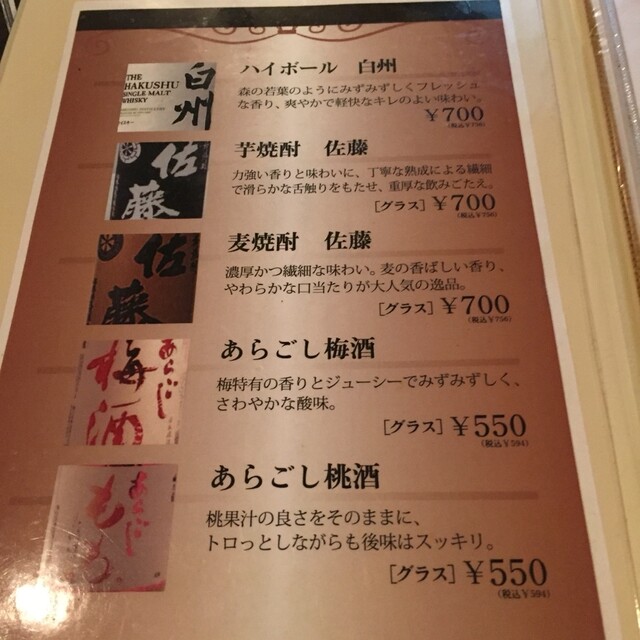 THE
HAKUSHU
SINGLE MALT
WHISKY
白州
ハイボール 白州
森の若葉のようにみずみずしくフレッシュ
な香り、爽やかで軽快なキレのよい味わい。
¥700
(税込¥756)
佐藤
芋焼酎 佐藤
力強い香りと味わいに、丁寧な熟成による繊細
で滑らかな舌触りをもたせ、重厚な飲みごたえ。
[グラス] ¥700
(税込¥756)
佐藤
麦焼酎 佐藤
濃厚かつ繊細な味わい。麦の香ばしい香り、
やわらかな口当たりが大人気の逸品。
[グラス] ¥700
(税込¥756)
あらごし
梅酒
あらごし梅酒
梅特有の香りとジューシーでみずみずしく、
さわやかな酸味。
[グラス] ¥550
(税込¥594)
あらごし
もも
あらごし桃酒
桃果汁の良さをそのままに、
トロっとしながらも後味はスッキリ。
[グラス] ¥550
(税込¥594)